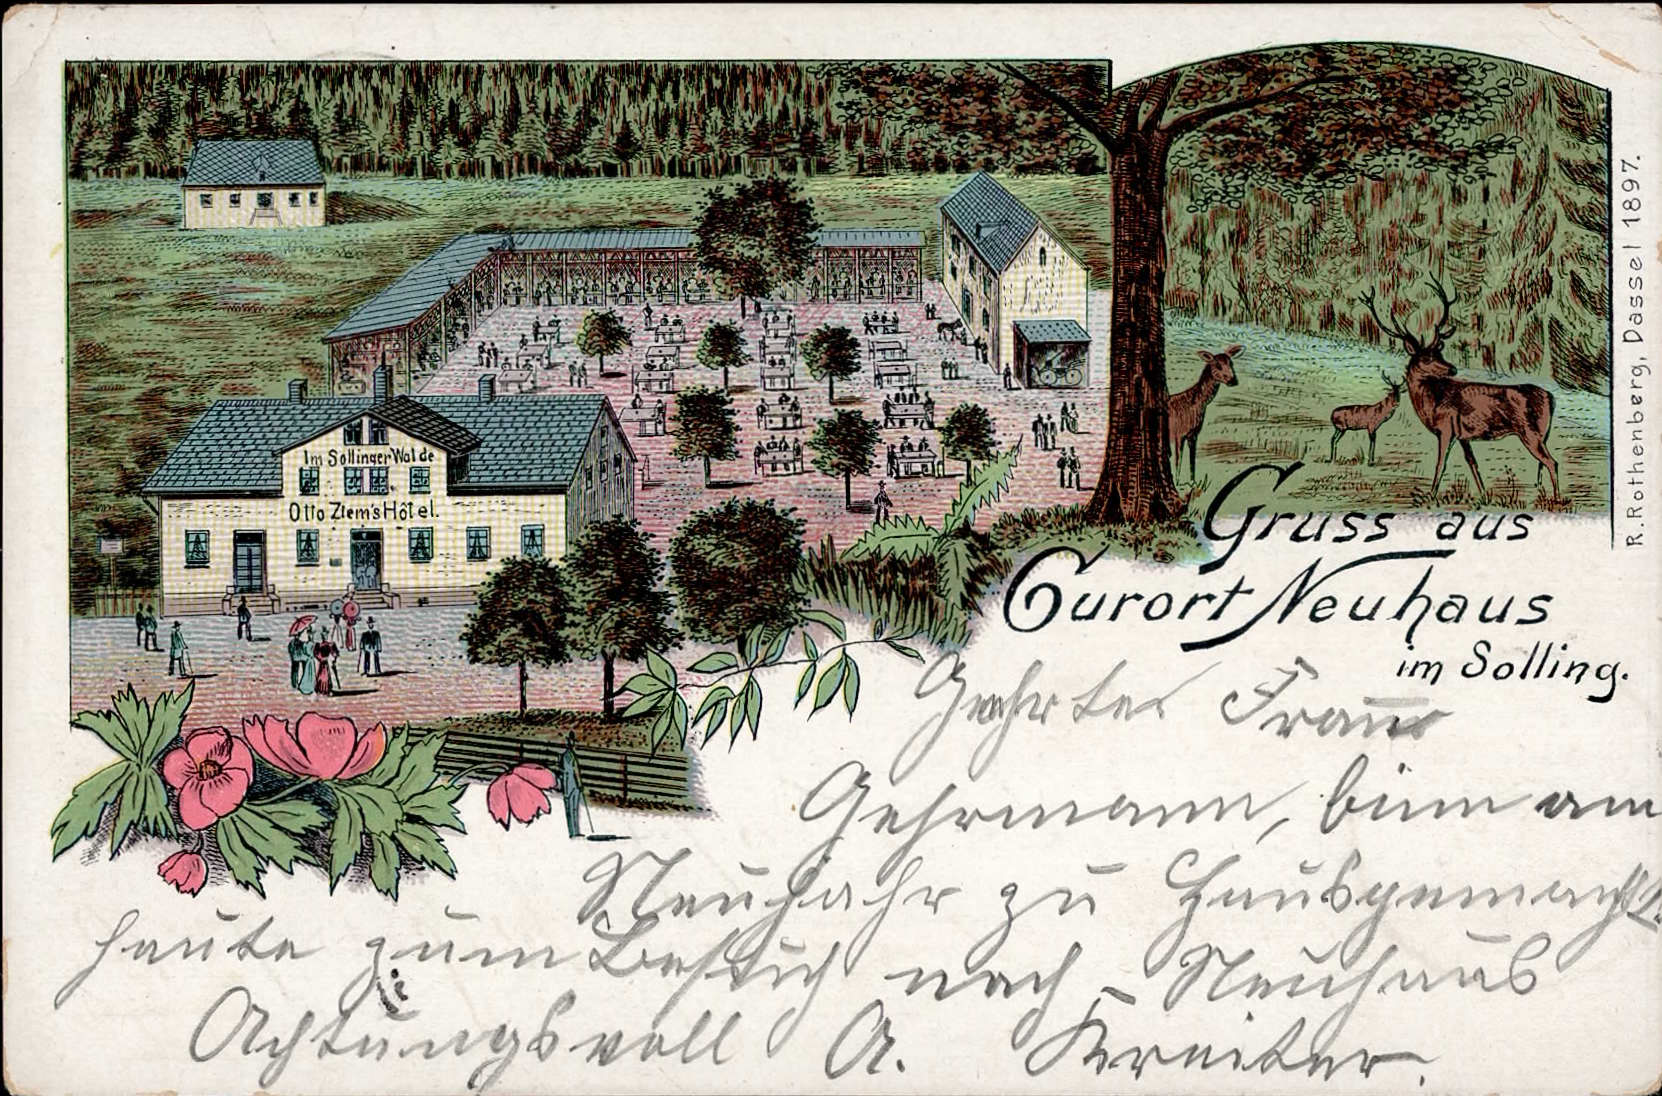 Im Sollinger Walde
Otto Ziem's Hôtel.
Gruss aus
Curort Neuhaus
im Solling.
R. Rothenberg, Dassel 1897.
Geehrter Frau
Gehrmann, binn am
Neujahr zu Hausgemacht
heute zum Besuch nach Neuhaus
Achtungsvoll A. Kreiter.